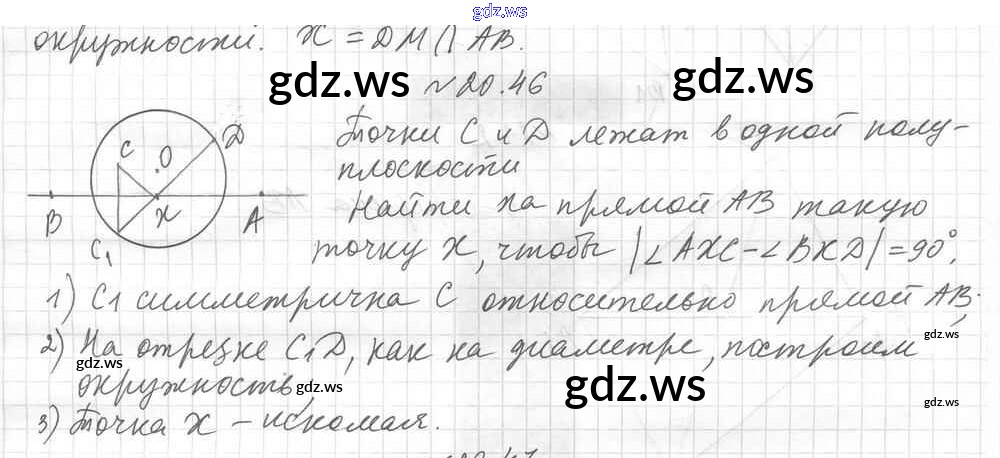 gdz.ws
окружности. X = DM ∩ AB.
gdz.ws
gdz.ws
№20.46
C
O
D
B
X
A
C₁
Точки C и D лежат в одной полу-
плоскости
Найти на прямой AB такую
точку X, чтобы |∠AXC - ∠BXD| = 90°.
1) C1 симметрична C относительно прямой AB;
gdz.ws
2) На отрезке C₁D, как на диаметре, построим
gdz.ws
окружность
gdz.ws
gdz.ws
gdz.ws
3) Точка X - искомая.